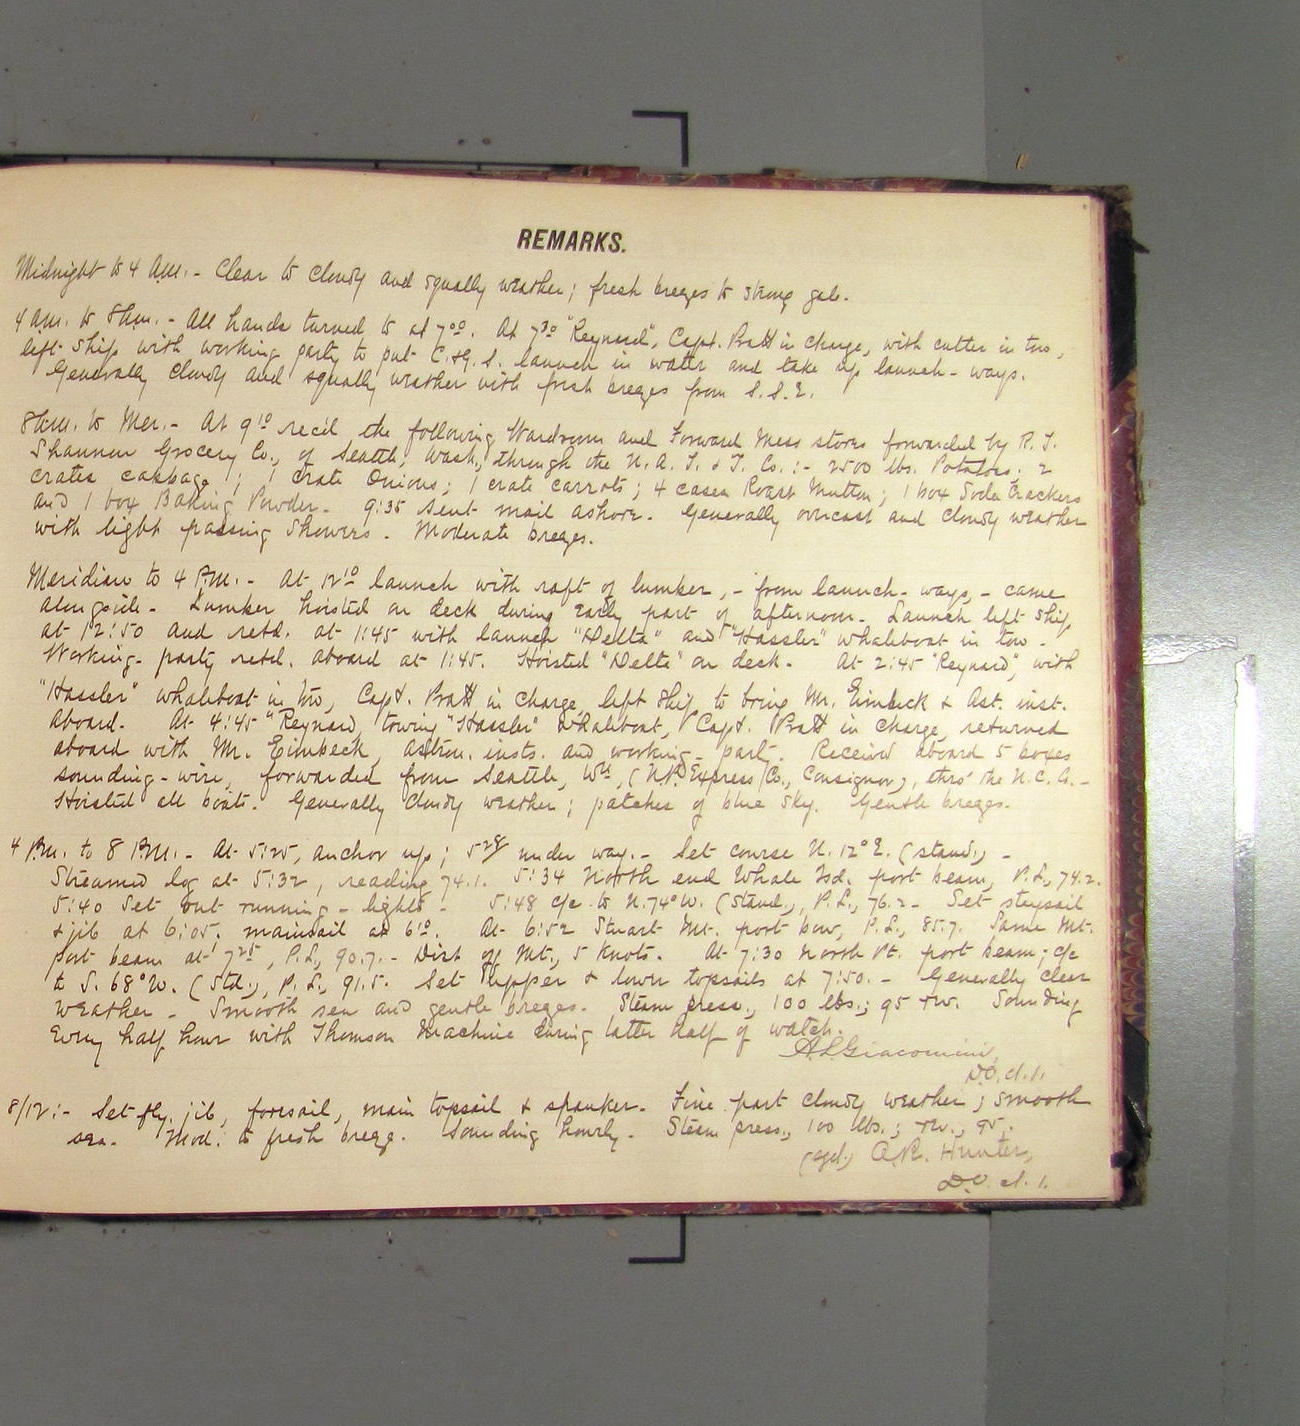 REMARKS.
Midnight to 4 A.M. - Clear to cloudy and squally weather; fresh breezes to strong gale.
4 a.m. to 8 a.m. - All hands turned to at 7:00. At 7:30 "Reynard", Capt. Pratt in charge, with cutter in tow,
left ship with working party to put C. & G. S. launch in water and take up launch-ways.
Generally cloudy and squally weather with fresh breezes from S.S.E.
8 a.m. to Mer. - At 9:10 rec'd the following Wardroom and Forward Mess stores forwarded by R. J.
Shannon Grocery Co., of Seattle, Wash., through the N. A. T. & T. Co.: - 2500 lbs. Potatoes; 2
crates cabbage; 1 crate Onions; 1 crate carrots; 4 cases Roast Mutton; 1 box Soda Crackers
and 1 box Baking Powder. 9:35 sent mail ashore. Generally overcast and cloudy weather
with light passing showers. Moderate breezes.
Meridian to 4 P.M. - At 12:10 launch with raft of lumber, - from launch-ways, - came
alongside. Lumber hoisted on deck during early part of afternoon. Launch left ship
at 12:50 and retd. at 1:45 with launch "Delta" and "Hassler" whaleboat in tow.
Working-party retd. aboard at 1:45. Hoisted "Delta" on deck. At 2:45 "Reynard", with
"Hassler" whaleboat in tow, Capt. Pratt in charge, left ship to bring Mr. Eimbeck & Ast. inst.
aboard. At 4:45 "Reynard, towing "Hassler" whaleboat, Capt. Pratt in charge, returned
aboard with Mr. Eimbeck, astron. insts. and working-party. Received aboard 5 boxes
sounding-wire, forwarded from Seattle, Wn, (N.P. Express Co., Consignor), thro' the N.C. Co. -
Hoisted all boats. Generally cloudy weather; patches of blue sky. Gentle breezes.
4 P.M. to 8 P.M. - At 5:25, anchor up; 5:28 under way. - Set course N. 12° E. (stand.) -
Streamed log at 5:32, reading 74.1. 5:34 North end Whale Isd. port beam, P.L., 74.2.
5:40 Set out running-lights. 5:48 c/c to N. 74° W. (Stand.), P.L., 76.2 - Set staysail
& jib at 6:05, mainsail at 6:10. At 6:52 Stuart Mt. port bow, P.L., 85.7. Same Mt.
port beam at 7:25, P.L., 90.7. - Dist of Mt., 5 knots. At 7:30 North Pt. port beam; c/c
to S. 68° W. (Std.), P.L., 91.5. Set upper & lower topsails at 7:50. - Generally clear
weather - Smooth sea and gentle breezes. Steam press., 100 lbs.; 95 rev. Sounding
every half hour with Thomson Machine during latter half of watch.
A. L. Giacomini,
8/12: - Set fly. jib, foresail, main topsail & spanker. Fine part cloudy weather; smooth
sea. Mod. to fresh breeze. Sounding hourly. Steam press., 100 lbs.; rev., 95.
(sgd.) A. R. Hunter,